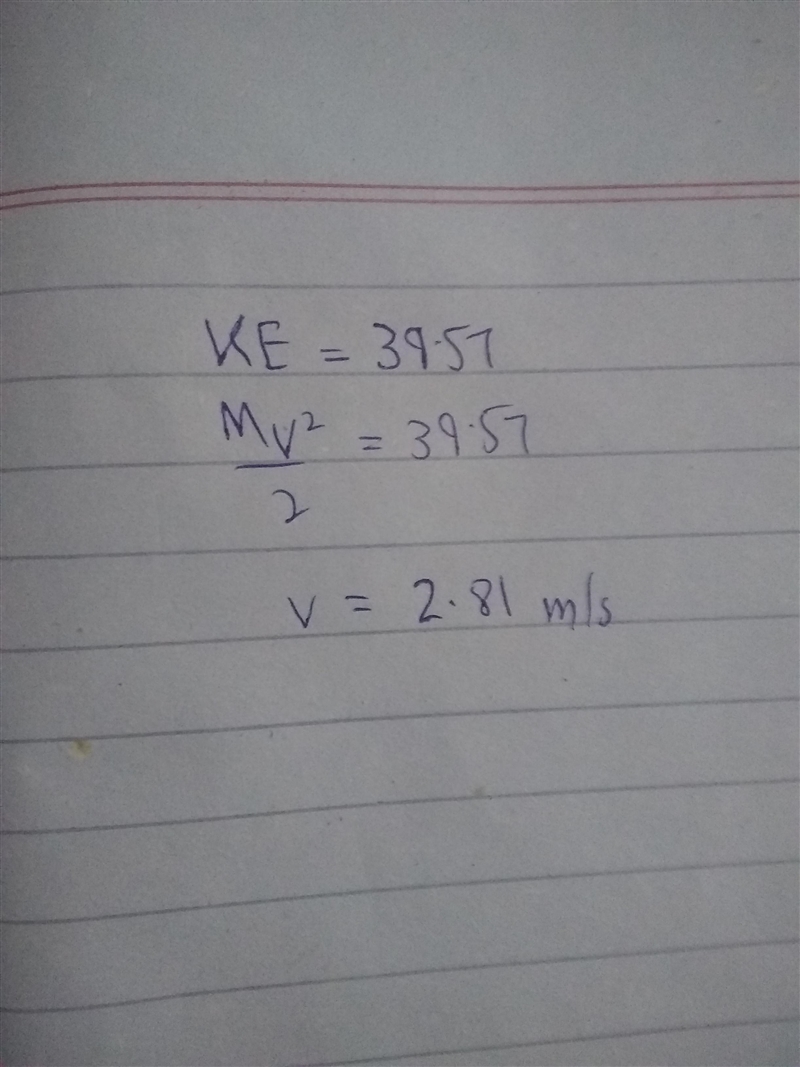 KE = 39.57
Mv² = 39.57
2
v = 2.81 m/s